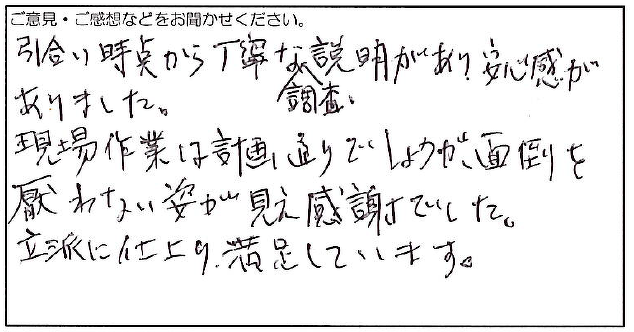 ご意見・ご感想などをお聞かせください。
引合い時点から丁寧な調査・説明があり安心感が
ありました。
現場作業は計画通りでしょうが、面倒を
厭わない姿が見え感謝でした。
立派に仕上り、満足しています。